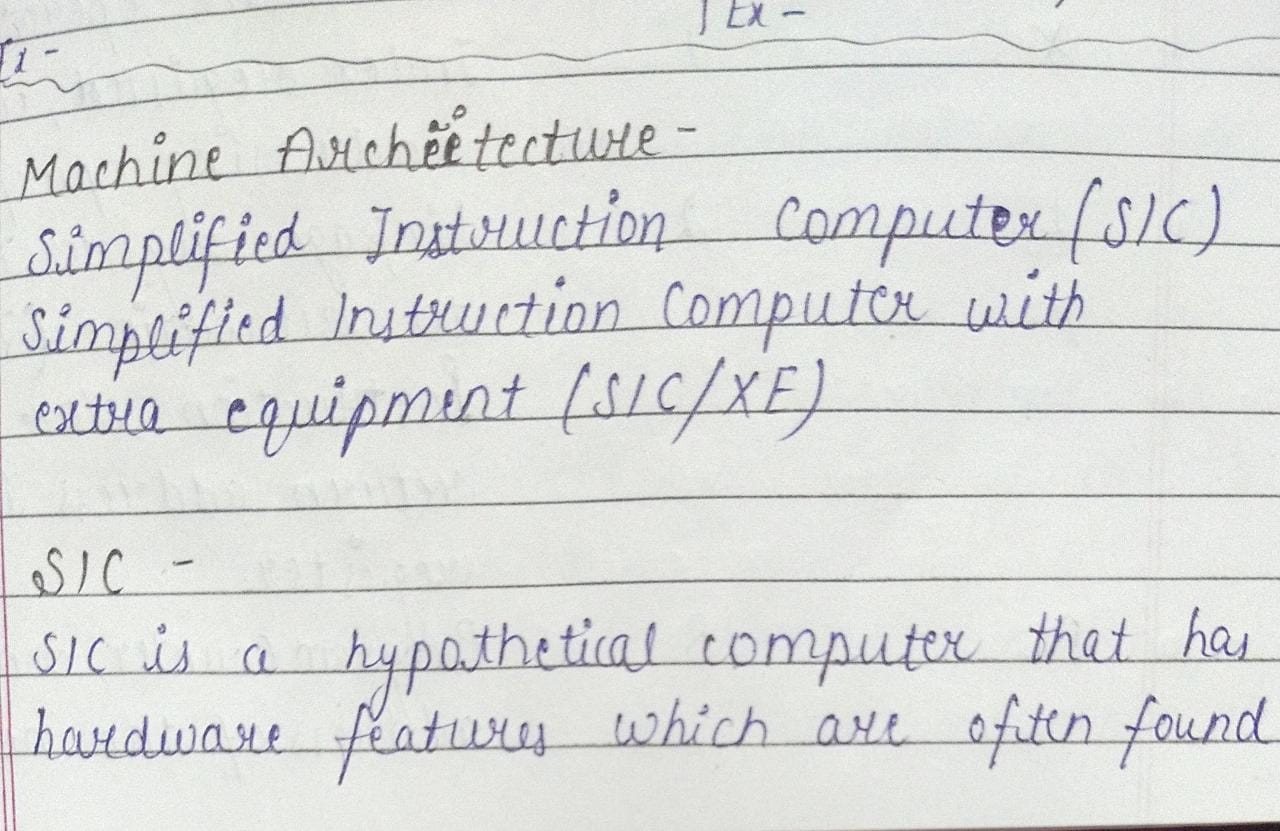 Ex -
Machine Archeitecture -
Simplified Instruction Computer (SIC)
Simplified Instruction Computer with
extra equipment (SIC/XE)
SIC -
SIC is a hypothetical computer that has
hardware features which are often found